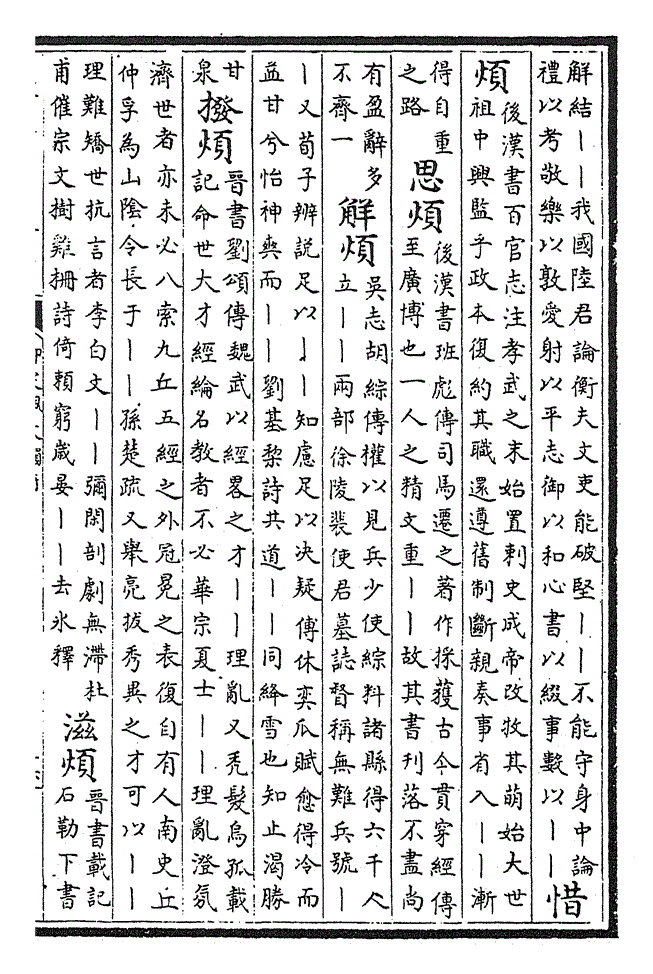 解結丨丨我國陸君論衡夫文吏能破堅丨丨不能守身中論
禮以考敬樂以敦愛射以平志御以和心書以綴事數以丨丨
惜煩
後漢書百官志注孝武之末始置刺史成帝改牧其萌始大世
祖中興監乎政本復約其職還遵舊制斷親奏事省入丨丨漸
得自重
之路
思煩
後漢書班彪傳司馬遷之著作採獲古今貫穿經傳
至廣博也一人之精文重丨丨故其書刊落不盡尚
有盈辭多
不齊一
解煩
吳志胡綜傳權以見兵少使綜料諸縣得六千人
立丨丨兩部徐陵裴使君墓誌督稱無難兵號丨
丨又荀子辨說足以丨丨知慮足以決疑傅休奕瓜賦愈得冷而
益甘兮怡神爽而丨丨劉基黎詩共道丨丨同絳雪也知止渴勝
甘
泉
撥煩
晉書劉頌傳魏武以經畧之才丨丨理亂又禿髮烏孤載
記命世大才經綸名教者不必華宗夏士丨丨理亂澄氛
濟世者亦未必八索九丘五經之外冠冕之表復自有人南史丘
仲孚為山陰令長于丨丨孫楚疏又舉亮拔秀異之才可以丨丨
理難矯世抗言者李白文丨丨彌閑剖劇無滯杜
甫催宗文樹雞柵詩倚賴窮歲晏丨丨去氷釋
滋煩
晉書載記
石勒下書